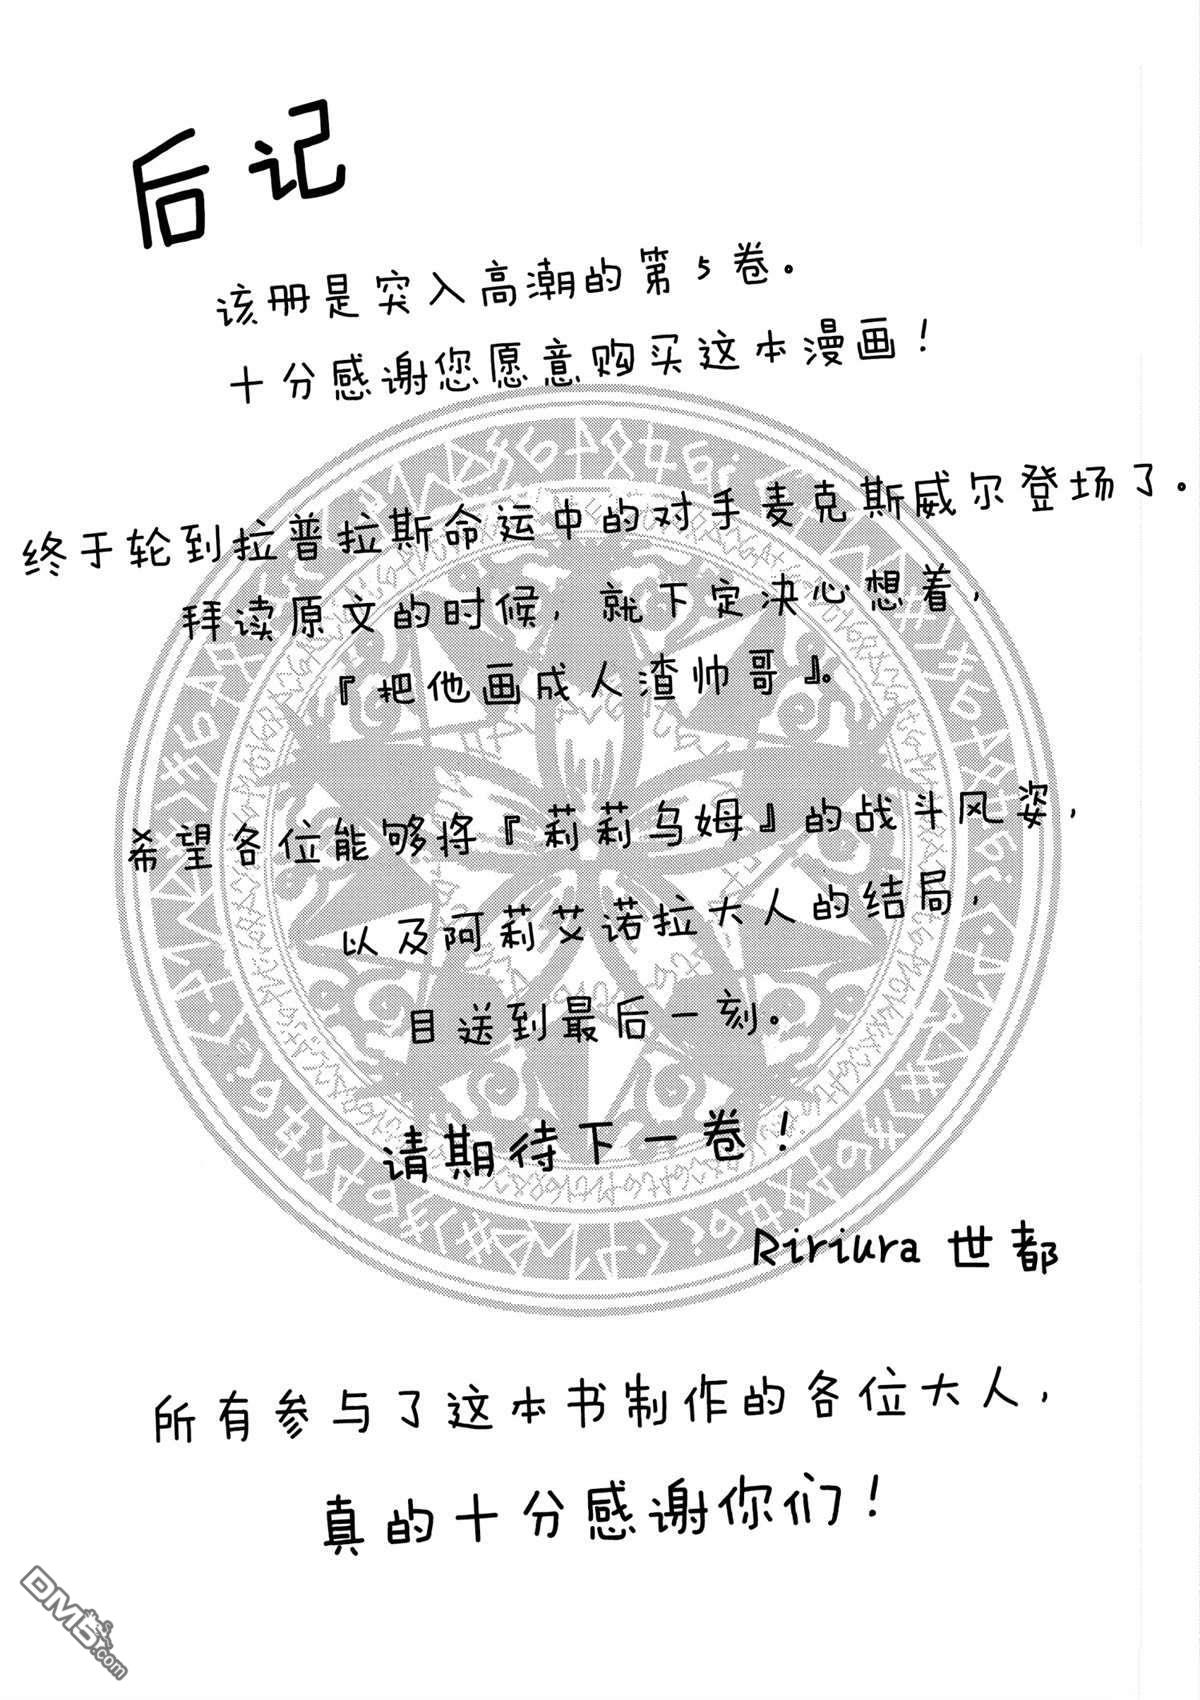 后记
该册是突入高潮的第5卷。
十分感谢您愿意购买这本漫画！
终于轮到拉普拉斯命运中的对手麦克斯威尔登场了。
拜读原文的时候，就下定决心想着，
『把他画成人渣帅哥』。
希望各位能够将『莉莉乌姆』的战斗风姿，
以及阿莉艾诺拉大人的结局，
目送到最后一刻。
请期待下一卷！
Ririura 世都
所有参与了这本书制作的各位大人，
真的十分感谢你们！
DM5.com